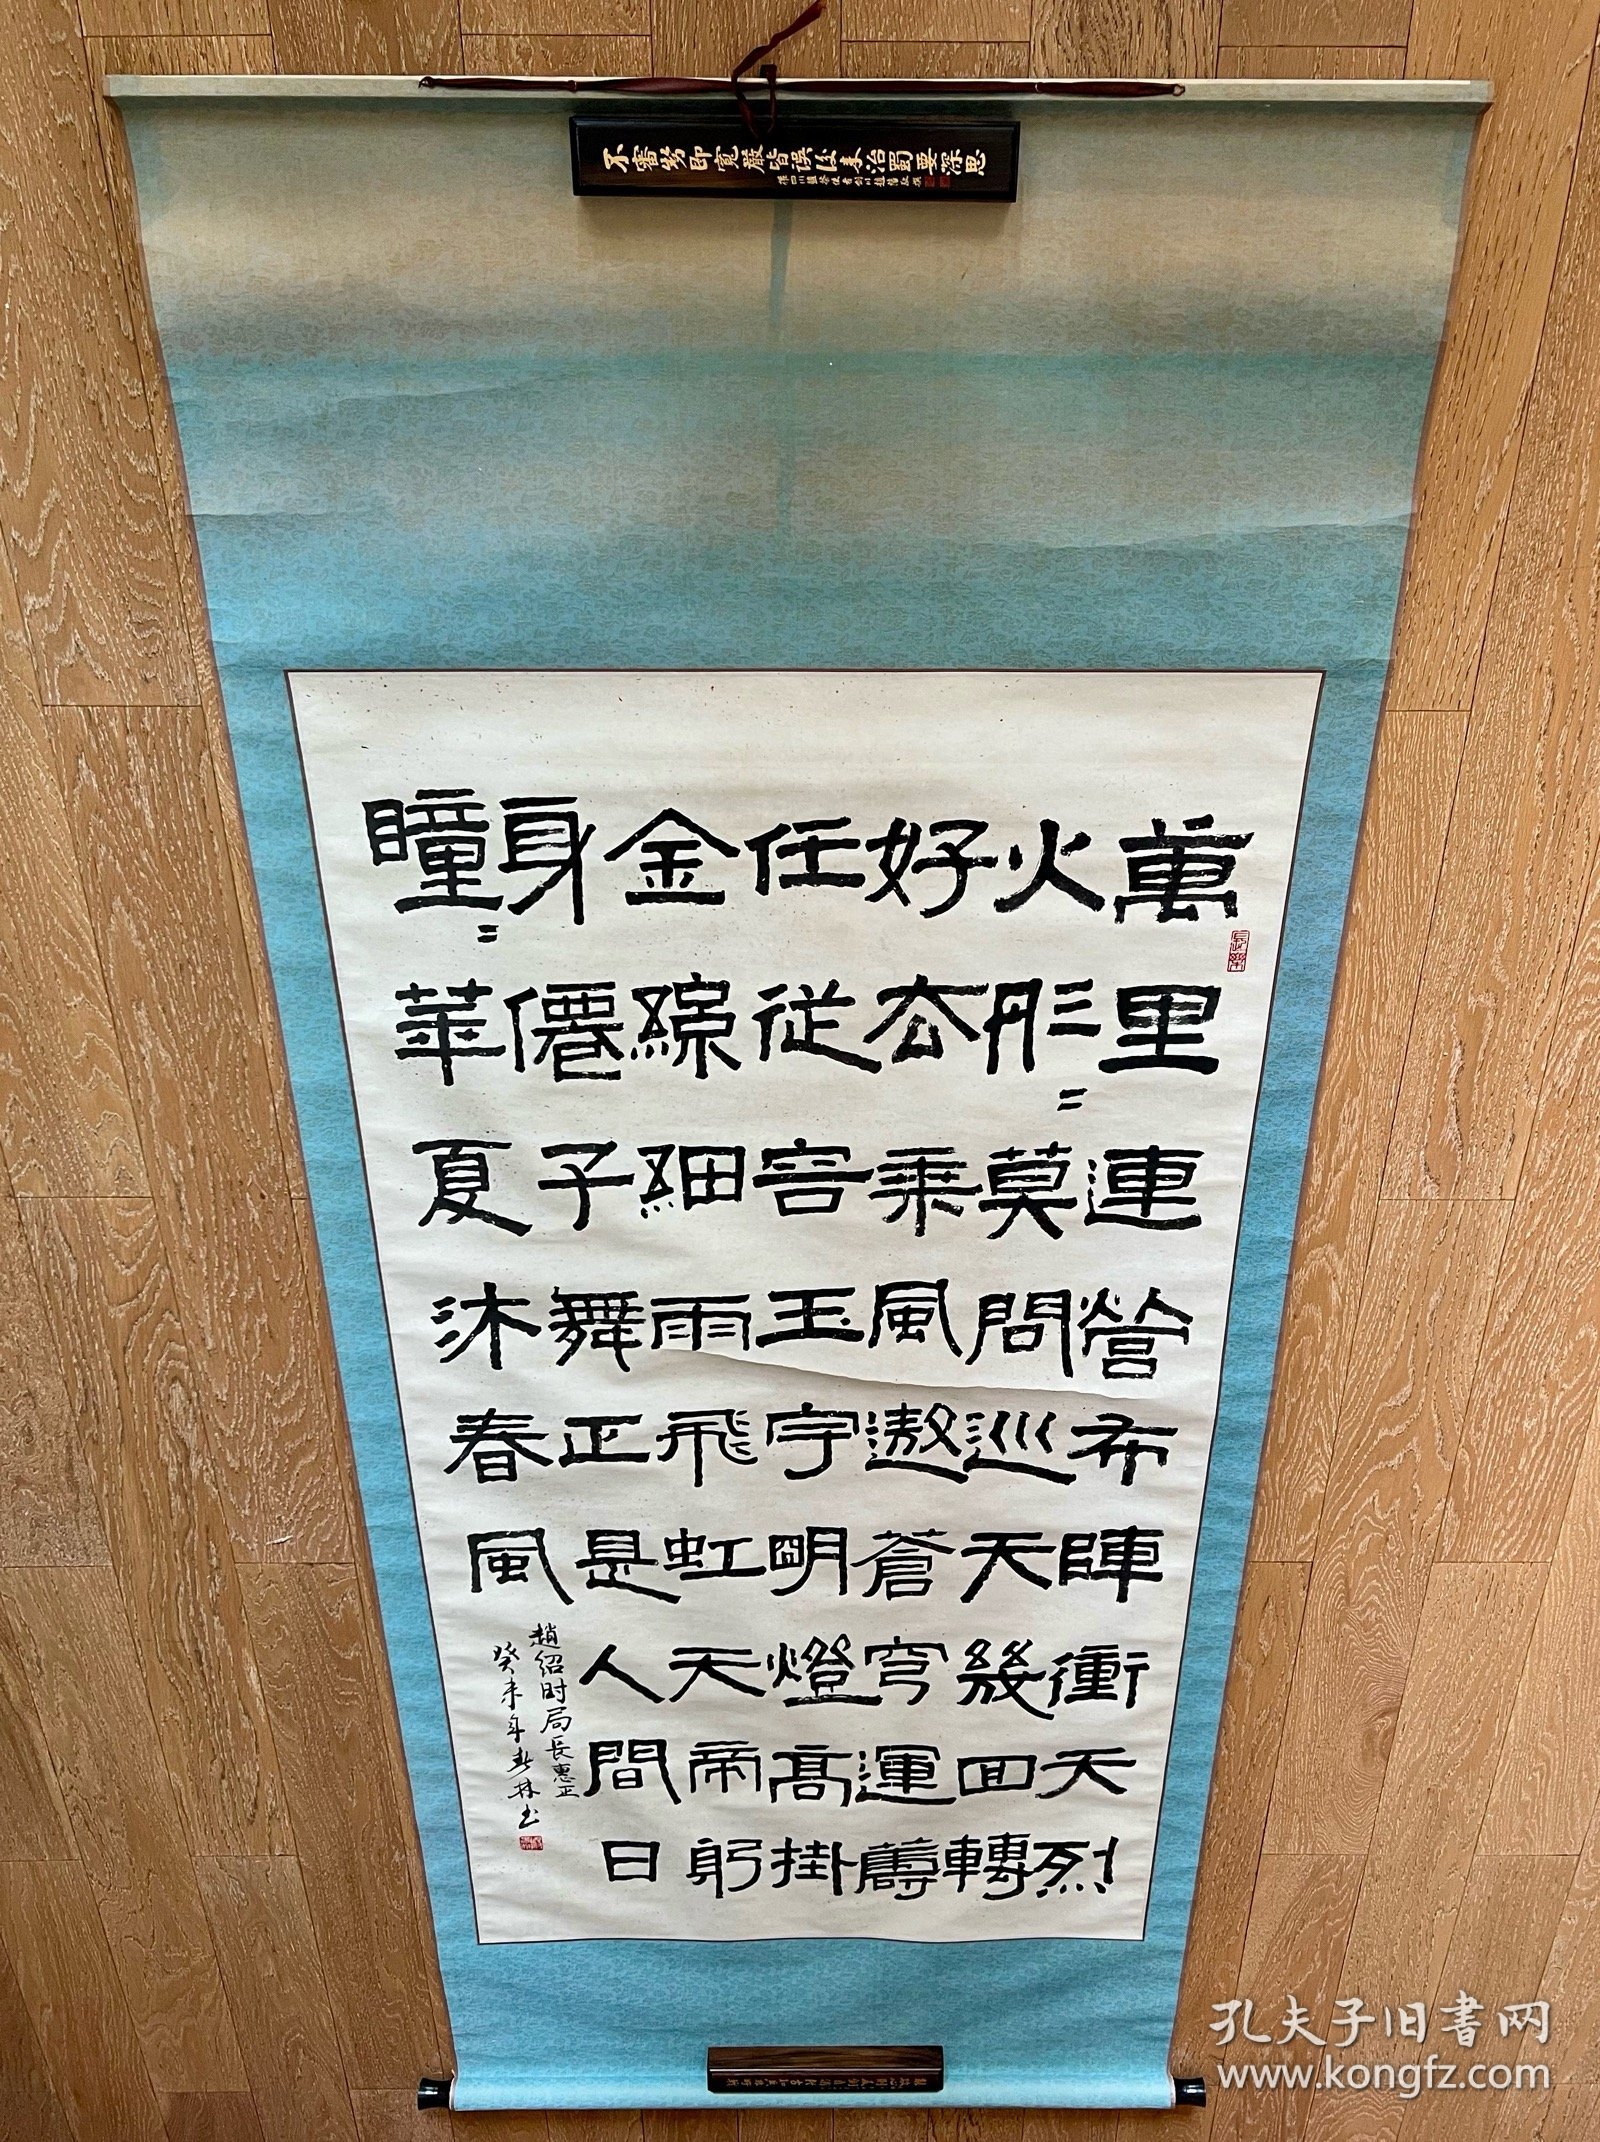 不審勢即寬嚴皆誤後來治蜀要深思
權四川鹽茶使者劍川趙藩敬撰
萬里連營布陣衝天烈
火彤〻莫問巡天幾回轉
好太乘風遨蒼穹運籌
任從容玉宇明燈高掛
金綜細雨飛虹天帝躬
身僊子舞正是人間日
瞳〻華夏沐春風
趙紹时局長惠正
癸未年春林书
孔夫子旧書网
www.kongfz.com